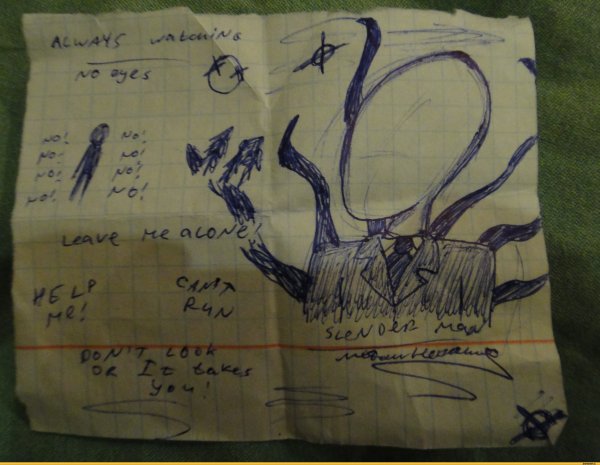 ALWAYS watching
No eyes
NO! NO!
NO! NO!
NO! NO!
NO! NO!
Leave Me ALONE!
HELP
ME!
CAN'T
RUN
DON'T LOOK
OR IT takes
You!
SLENDER MAN